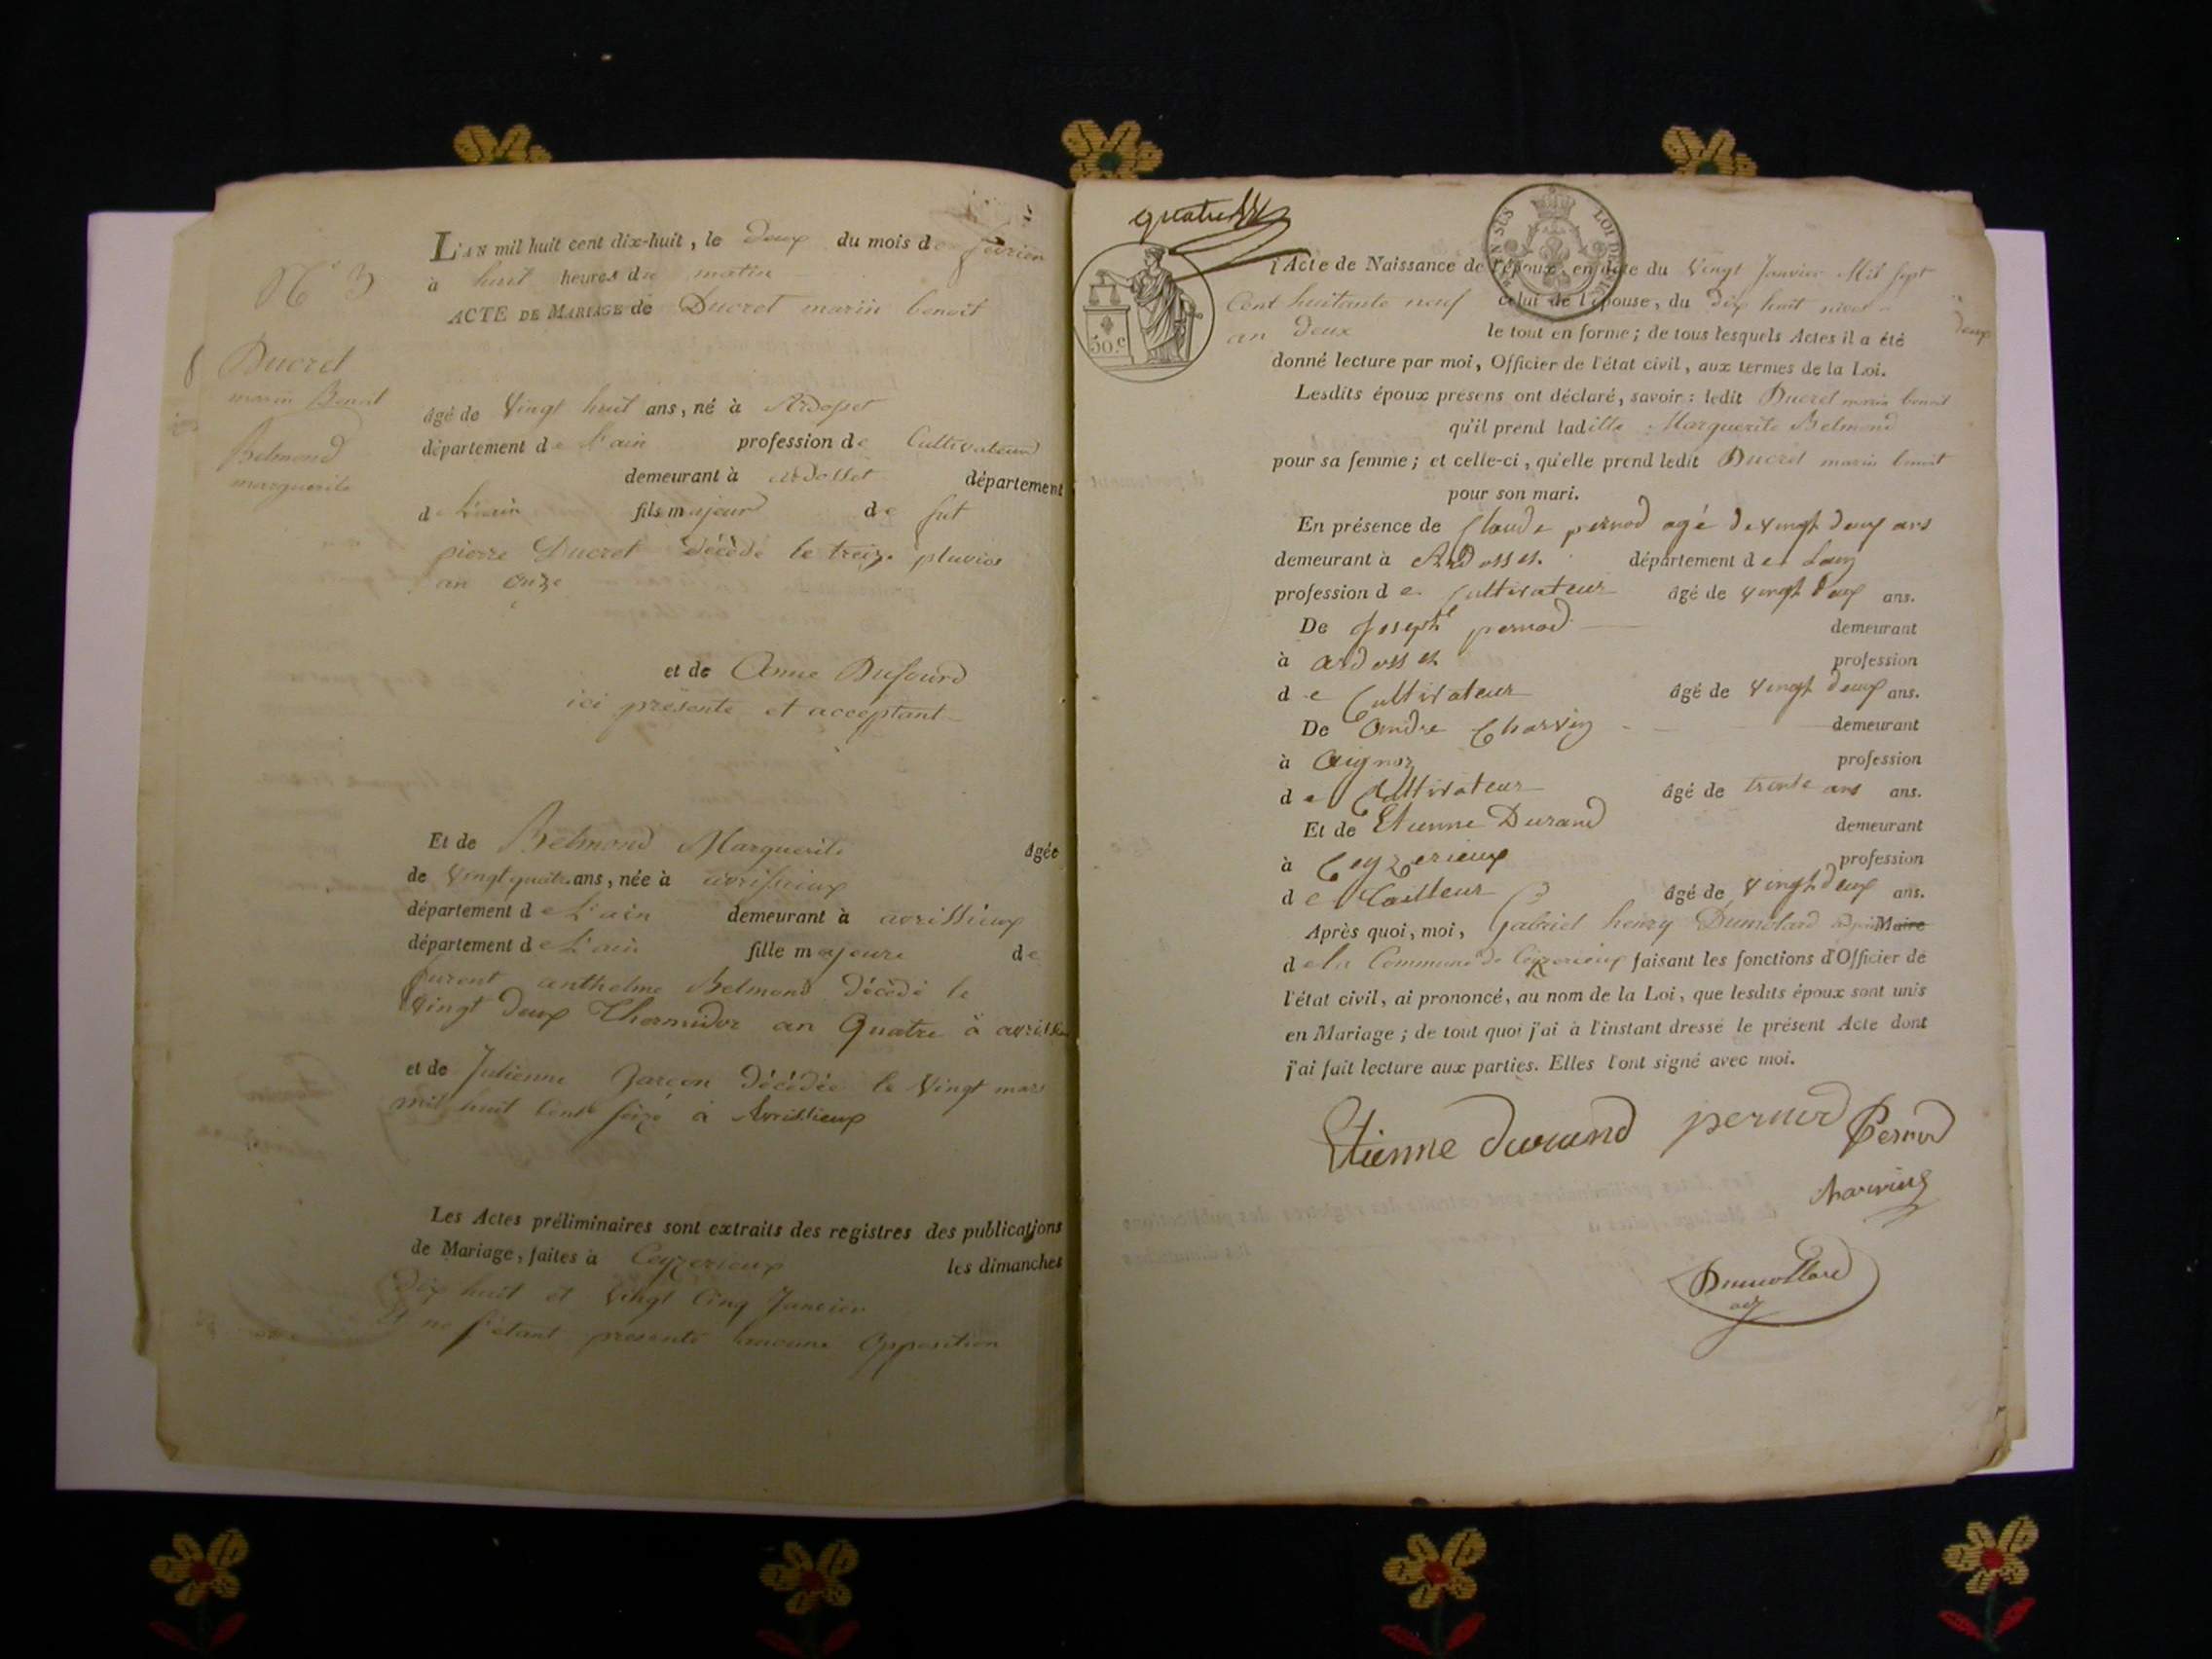 N° 3
Ducret
marin Benoit
Belmond
marguerite
L'AN mil huit cent dix-huit, le Deux du mois de février
à huit heures du matin
ACTE DE MARIAGE de Ducret marin benoit
âgé de Vingt huit ans, né à Ardosset
département de L'ain profession de Cultivateur
demeurant à ardosset département
de L'ain fils majeur de fut
pierre Ducret décédé le treize pluvios
an onze
et de Anne Dufourd
ici présente et acceptant
Et de Belmond Marguerite âgée
de Vingt quatre ans, née à avrissieux
département de L'ain demeurant à avrissieux
département de L'ain fille majeure de
furent anthelme Belmond décédé le
Vingt Deux Thermidor an Quatre à
et de Julienne Jarçon Décédée le Vingt mars
mil huit Cent seize à Avrissieux
Les Actes préliminaires sont extraits des registres des publications
de Mariage, faites à Ceyzerieux les dimanches
Dix huit et Vingt Cinq Janvier
Et ne s'étant présenté aucune Opposition
LOI DE
50.c
l'Acte de Naissance de l'époux, en date du Vingt Janvier Mil sept
Cent huitante neuf celui de l'épouse, du Dix huit nivos
an Deux le tout en forme; de tous lesquels Actes il a été
donné lecture par moi, Officier de l'état civil, aux termes de la Loi.
Lesdits époux présens ont déclaré, savoir: ledit Ducret marin benoit
qu'il prend ladille Marguerite Belmond
pour sa femme; et celle-ci, qu'elle prend ledit Ducret marin benoit
pour son mari.
En présence de Claude pernod agé de vingt deux ans
demeurant à Ardosset. département de Lain
profession de Cultivateur âgé de vingt deux ans.
De Joseph pernod demeurant
à ardosset profession
de Cultivateur âgé de vingt deux ans.
De andre Charvin demeurant
à Aignoz profession
de Cultivateur âgé de trente ans ans.
Et de Etienne Durand demeurant
à Ceyzerieux profession
de tailleur âgé de vingt deux ans.
Après quoi, moi, Gabriel henry Dumolard adjoint Maire
de la Commune de Ceyzerieux faisant les fonctions d'Officier de
l'état civil, ai prononcé, au nom de la Loi, que lesdits époux sont unis
en Mariage; de tout quoi j'ai à l'instant dressé le présent Acte dont
j'ai fait lecture aux parties. Elles l'ont signé avec moi.
Etienne durand pernod Pernod
Charvin
Dumollard
adj